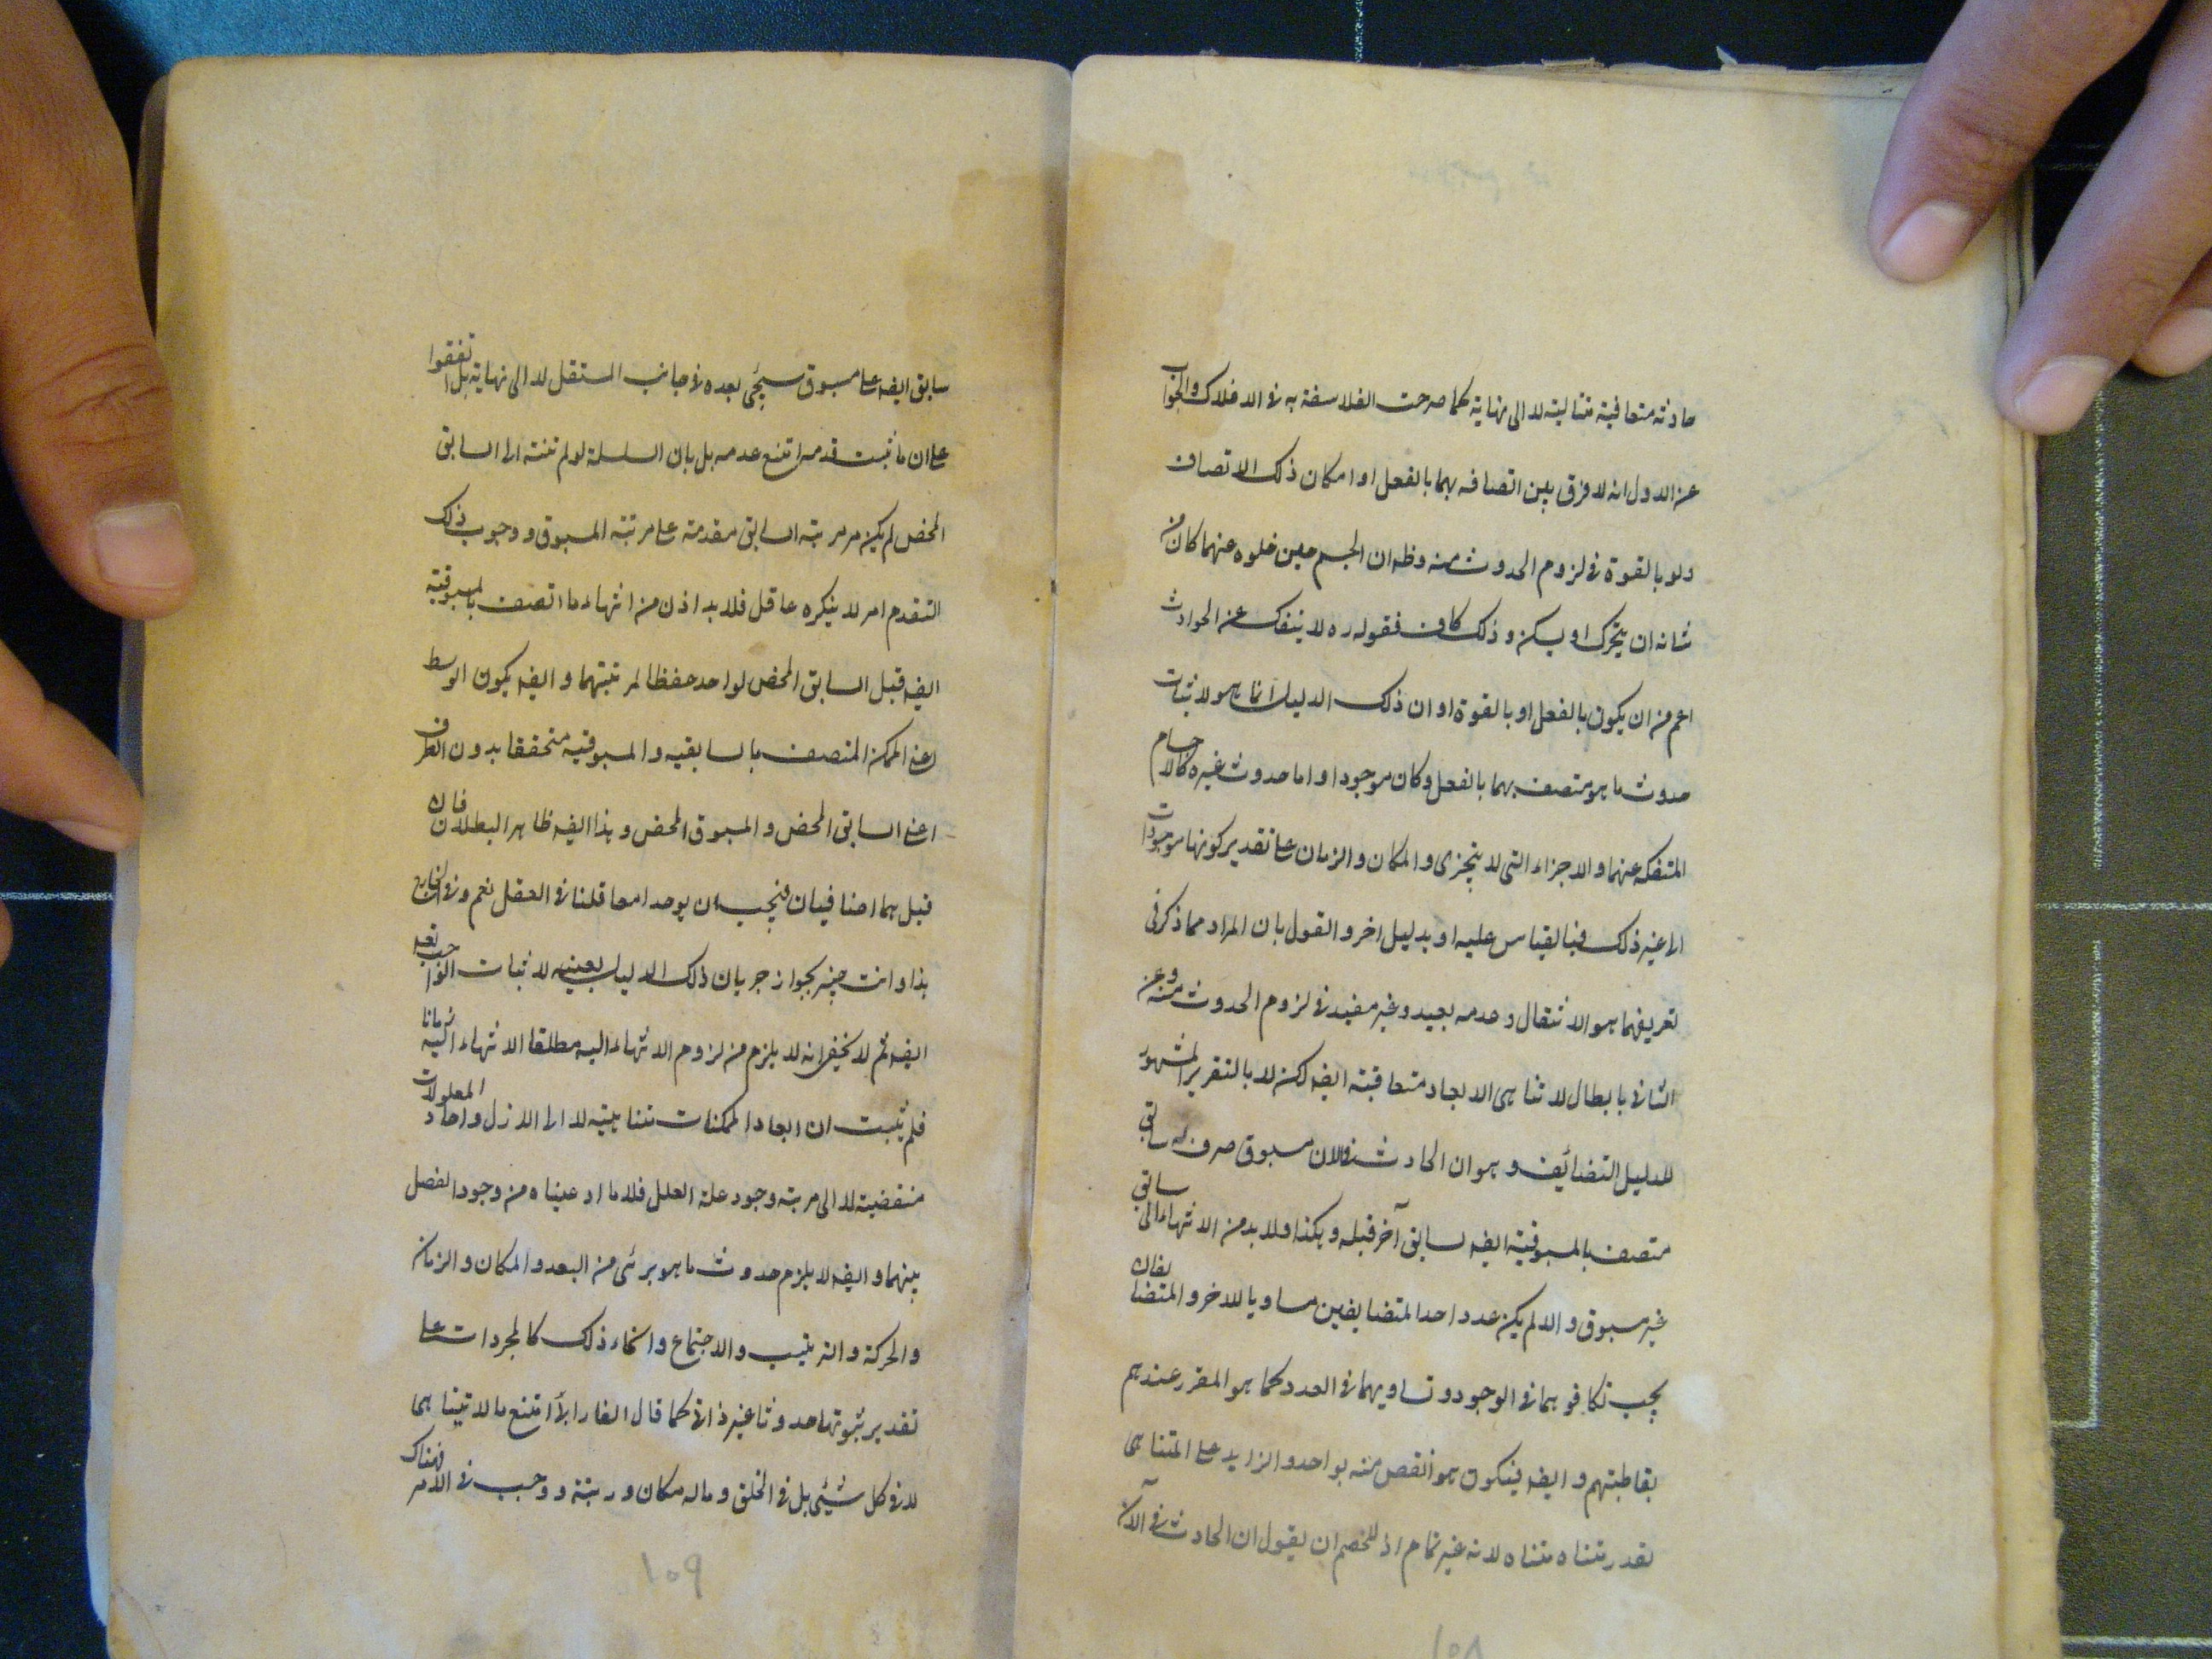 حادثه متعاقبة متتالية لا الى نهاية كما صرحت الفلاسفة به فى الافلاك والجواب
عن الاول انه لا فرق بين اتصافه بهما بالفعل او امكان ذلك الاتصاف
ولو بالقوة فى لزوم الحدوث منه وظ ان الجسم حين خلوه عنهما كان من
شانه ان يتحرك او يسكن و ذلك كاف فقوله ره لا ينفك عن الحوادث
اعم من ان يكون بالفعل او بالقوة او ان ذلك الدليل انما هو لاثبات
حدوث ما هو متصف بهما بالفعل وكان موجودا و اما حدوث غيره كالاجسام
المنفكه عنهما و الاجزاء التى لا يتجزى و المكان و الزمان على تقدير كونها موجودات
الى غير ذلك فبالقياس عليه او بدليل اخر و القول بان المراد مما ذكر فى
تعريفهما هو الانتقال و عدمه بعيد و غير مفيد فى لزوم الحدوث منه و عن
الثانى بابطال لا تناهى الابعاد متعاقبته ايضه لكن لا بالتقرير المشهور
للدليل التضائف و هو ان الحادث الان مسبوق صرف له سابق
متصف بالمسبوقية ايضه لسابق آخر قبله و هكذا و لابد من الانتهاء الى سابق
غير مسبوق و الا لم يكن عدد احد المتضايفين مساويا للاخر و المتضايفان
يجب تكافوهما فى الوجود و تساويهما فى العدد كما هو المقرر عندهم
بقاطبتهم و ايضه فيكون هو انقص منه بواحد و الزايد على المتناهى
بقدر متناه متناه لانه غير تمام اذ للخصم ان يقول ان الحادث فى الآن
١٠٨
سابق ايضه على مسبوق سيجئ بعده فى جانب المستقبل لا الى نهاية بل اتفقوا
على ان ما ثبت قدمه امتنع عدمه بل بان السلسلة لو لم تنته الى السابق
المحض لم يكن مرتبه السابق متقدمة على مرتبه المسبوق و وجوب ذلك
التقدم امر لا ينكره عاقل فلا بد اذن من انتهاء ما اتصف بالمسبوقية
ايضه قبل السابق المحض لواحد حفظا لمرتبتهما و ايضه يكون الوسط
اعنى الممكن المتصف بالسابقيه و المسبوقيه متحققا بدون الطرف
اعنى السابق المحض و المسبوق المحض و هذا ايضه ظاهر البطلان فان
قيل هما اضافيان فيجب ان يوجدا معا قلنا فى العقل نعم و فى الخارج
هذا و انت خبير بجواز جريان ذلك الدليل بعينه لاثبات الواجب تعه
ايضه ثم لا يخفى انه لا يلزم من لزوم الانتهاء اليه مطلقا الانتهاء اليه زمانا
فلم يثبت ان ابعاد الممكنات متناهيته لا الى الازل و احاد المعلولات
منقضية لا الى مرتبه وجود علة العلل فلا ما ادعيناه من وجود الفصل
بينهما و ايضه لا يلزم حدوث ما هو برئى من البعد و المكان و الزمان
و الحركة و الترتيب و الاجتماع و انحاء ذلك كالمجردات على
تقدير ثبوتها حدوثا غير ذاتى كما قال الفارابى امتنع مالا يتناهى
لا فى كل شيئى بل فى الخلق و ماله مكان و رتبة و وجب فى الامر فهناك
١٠٩